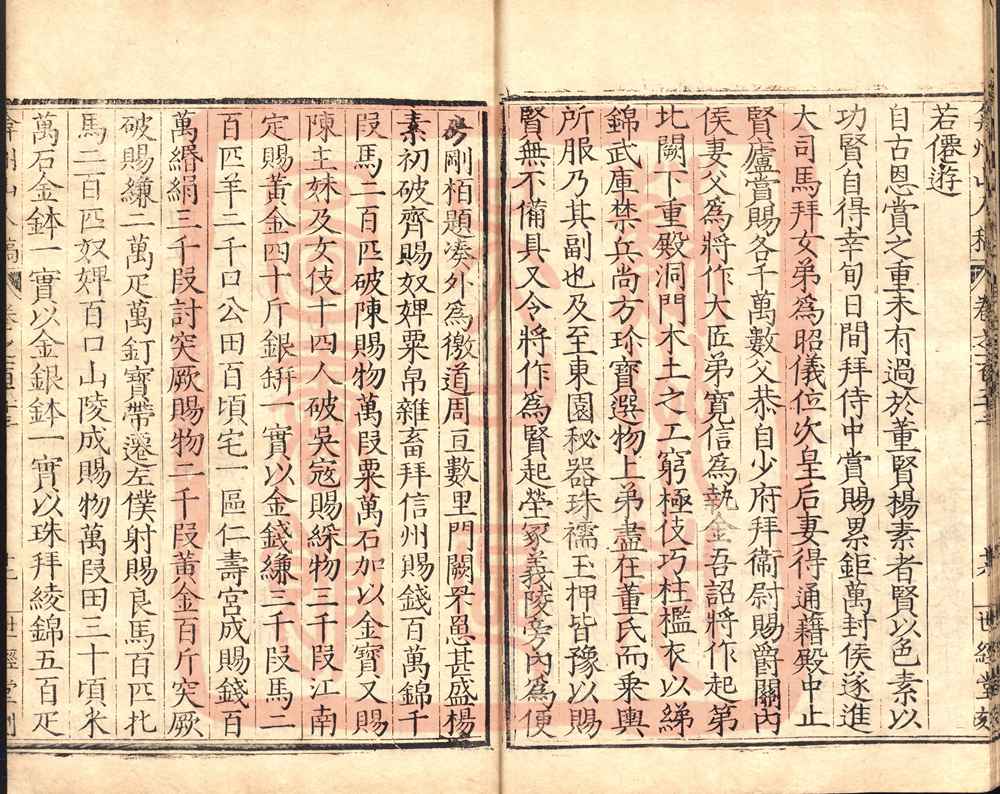 弇州山人稿 卷之一百五十 世經堂刻
若僊遊
自古恩賞之重未有過於董賢楊素者賢以色素以
功賢自得幸旬日間拜侍中賞賜累鉅萬封侯遂進
大司馬拜女弟爲昭儀位次皇后妻得通籍殿中止
賢廬賞賜各千萬數父恭自少府拜衞尉賜爵關內
侯妻父爲將作大匠弟寬信爲執金吾詔將作起第
北闕下重殿洞門木土之工窮極伎巧柱檻衣以綈
錦武庫禁兵尚方珍寶選物上弟盡在董氏而乘輿
所服乃其副也及至東園秘器珠襦玉柙皆豫以賜
賢無不備具又令將作爲賢起塋冢義陵旁內爲便
房剛栢題凑外爲徼道周亘數里門闕罘罳甚盛楊
素初破齊賜奴婢粟帛雜畜拜信州賜錢百萬錦千
段馬二百匹破陳賜物萬段粟萬石加以金寶又賜
陳主妹及女伎十四人破吳寇賜綵物三千段江南
定賜黃金四十斤銀缾一實以金錢縑三千段馬二
百匹羊二千口公田百頃宅一區仁壽宮成賜錢百
萬緡絹三千段討突厥賜物二千段黃金百斤突厥
破賜縑二萬疋萬釘寶帶遷左僕射賜良馬百匹牝
馬二百匹奴婢百口山陵成賜物萬段田三十頃米
萬石金鉢一實以金銀鉢一實以珠拜綾錦五百疋